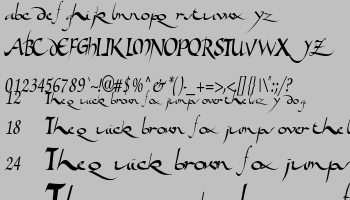 abc def ghijk lmnopq rstuvwx yz
ABCDEFGHIJKLMNOPQRSTUVWX YZ
0123456789`~!@#$%^&*()-_+=>,<[]{}|\":;/?
12 The q uick brown f ox jumps over the laz y do g
18 The q uick brown f ox jumps over the l
24 The q uick brown f ox jumps